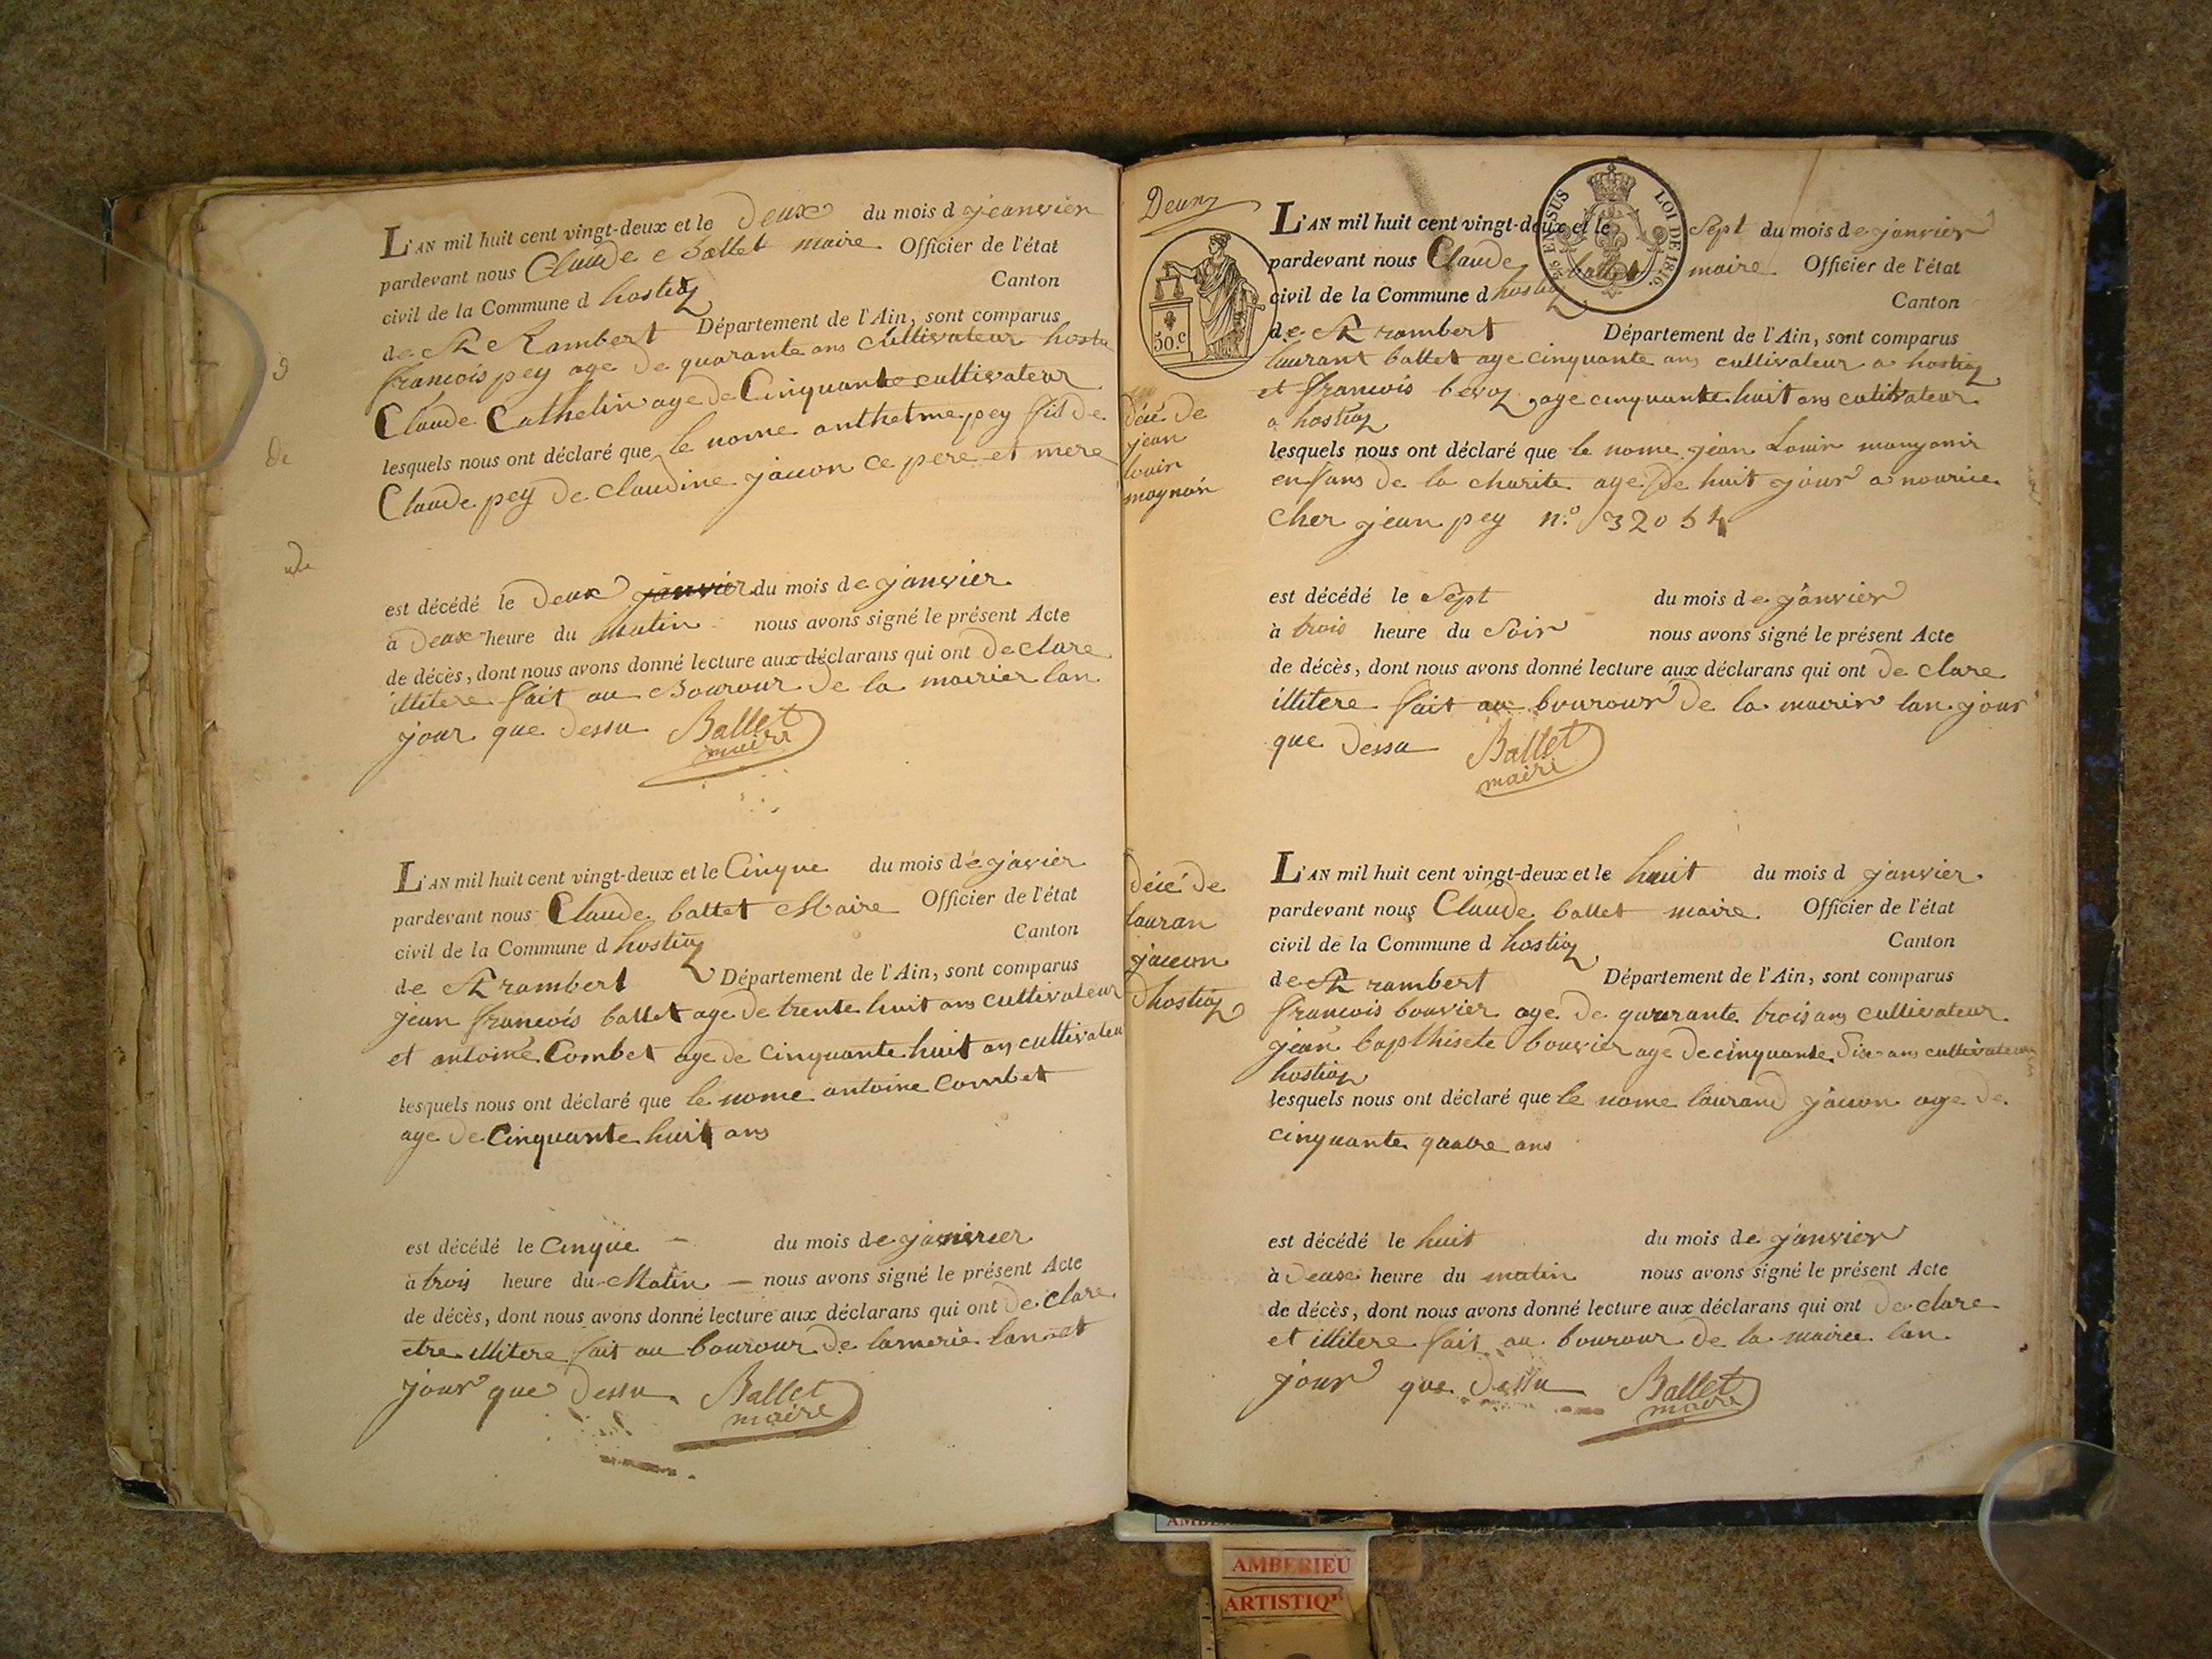 L'AN mil huit cent vingt-deux et le deux du mois d jeanvier
pardevant nous Claude Ballet maire Officier de l'état
civil de la Commune d hostiaz Canton
de St Rambert Département de l'Ain, sont comparus
francois pey age de quarante ans cultivateur hostia
Claude Cathelin age de Cinquante cultivateur
lesquels nous ont déclaré que le nome anthelme pey fils de
Claude pey de claudine jacon ce pere et mere
est décédé le deux janvier du mois de janvier
à deux heure du matin nous avons signé le présent Acte
de décès, dont nous avons donné lecture aux déclarans qui ont declare
illitere fait au Bourour de la mairier lan
jour que dessu Ballet
maire
L'AN mil huit cent vingt-deux et le Cinque du mois de javier
pardevant nous Claude ballet Maire Officier de l'état
civil de la Commune d hostiaz Canton
de St rambert Département de l'Ain, sont comparus
jean francois ballet age de trente huit ans cultivateur
et antoine Combet age de cinquante huit ans cultivateu
lesquels nous ont déclaré que le nome antoine Combet
age de Cinquante huit ans
est décédé le cinque du mois de
à trois heure du Matin nous avons signé le présent Acte
de décès, dont nous avons donné lecture aux déclarans qui ont declare
etre illitere fait au bourour de lamerie lan et
jour que dessu Ballet
maire
30.c
EN SUS LOI DE 1816.
décé de
jean
louin
magnin
L'AN mil huit cent vingt-deux et le Sept du mois de janvier
pardevant nous Claude ballet maire Officier de l'état
civil de la Commune d hostiaz Canton
de St rambert Département de l'Ain, sont comparus
laurant ballet age cinquante ans cultivateur a hostiaz
et francois bevoz age cinquante huit ans cultivateur
a hostiaz
lesquels nous ont déclaré que le nome jean Louin
enfans de la charite age de huit jour a nourice
cher jean pey n.o 32054
est décédé le Sept du mois de janvier
à trois heure du Soir nous avons signé le présent Acte
de décès, dont nous avons donné lecture aux déclarans qui ont declare
illitere fait au bourour de la mairir lan jour
que dessu Ballet
maire
décé de
lauran
jacon
dhostiaz
L'AN mil huit cent vingt-deux et le huit du mois d janvier
pardevant nous Claude ballet maire Officier de l'état
civil de la Commune d hostiaz Canton
de St rambert Département de l'Ain, sont comparus
francois bouvier age de quarante trois ans cultivateur
jean bapthisete bouvier age de cinquante Six ans cultivateur
hostiaz
lesquels nous ont déclaré que le nome laurand jacon age de
cinquante quatre ans
est décédé le huit du mois de janvier
à deux heure du matin nous avons signé le présent Acte
de décès, dont nous avons donné lecture aux déclarans qui ont declare
et illitere fait au bourour de la mairee lan
jour que dessu Ballet
maire
AMBERIEU
ARTISTIQ